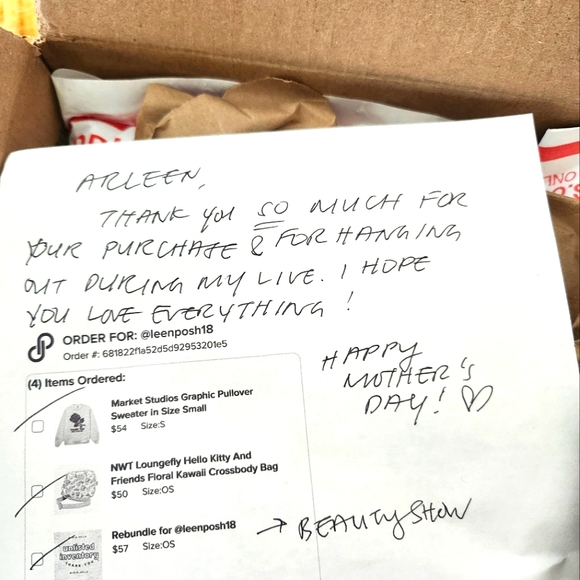 ARLEEN,
THANK YOU SO MUCH FOR
YOUR PURCHASE & FOR HANGING
OUT DURING MY LIVE. I HOPE
YOU LOVE EVERYTHING!
ORDER FOR: @leenposh18
Order #: 681822f1a52d5d92953201e5
HAPPY
MOTHER'S
DAY! ♡
(4) Items Ordered:
Market Studios Graphic Pullover
Sweater in Size Small
$54 Size:S
NWT Loungefly Hello Kitty And
Friends Floral Kawaii Crossbody Bag
$50 Size:OS
Rebundle for @leenposh18
$57 Size:OS
→ BEAUTYSHOW
unlisted
inventory
THANK YOU